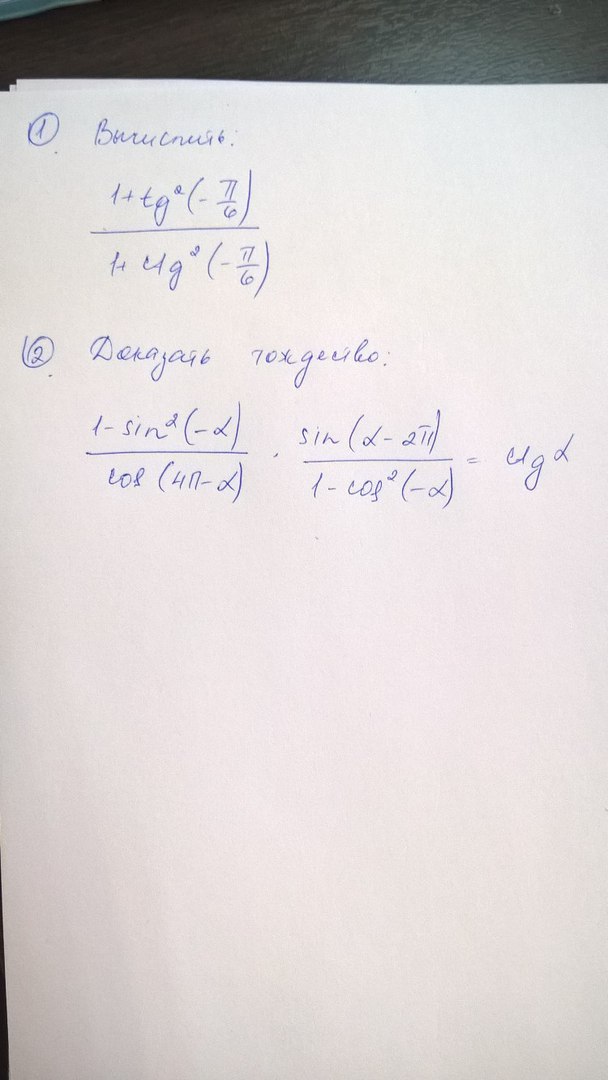 ① Вычислить:
1+tg²(-π/6)
1+ctg²(-π/6)
② Доказать тождество:
1-sin²(-α) / cos(4π-α) · sin(α-2π) / 1-cos²(-α) = ctgα